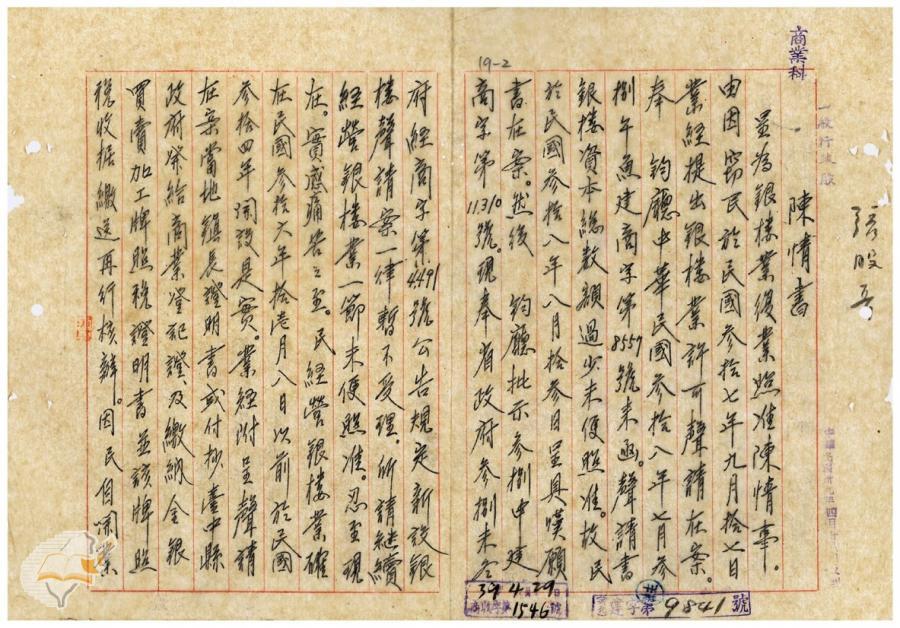 商業科
19-2
陳情書
呈為銀樓業復業照准陳情事。
由因窃民於民國參拾七年九月拾七日
業經提出銀樓業許可聲請在案。
奉 鈞廳中華民國參拾八年七月參
捌午魚建商字第8557號未函。聲請書
銀樓資本總数額過少未便照准。故民
於民國參拾八年八月拾參日呈具嘆願
書在案。然後 鈞廳批示參捌申 建
商字第11310號。現奉省政府參捌未冬
府經商字第4491號公告規定新設銀
樓聲請案一律暫不受理。所請継續
經營銀樓業一節未便照准。忍至現
在。實感痛苦之至。民經營銀樓業確
在民國參拾六年拾壱月八日以前於民國
參拾四年開設是實。業經附呈聲請
在案當地鎮長證明書或付抄臺中縣
政府發給商業登記證、及繳納金銀
買賣加工牌照稅證明書並該牌照
稅收据繳送再行核辦。因民自開業
39 4月29日
1546號
字第9841號